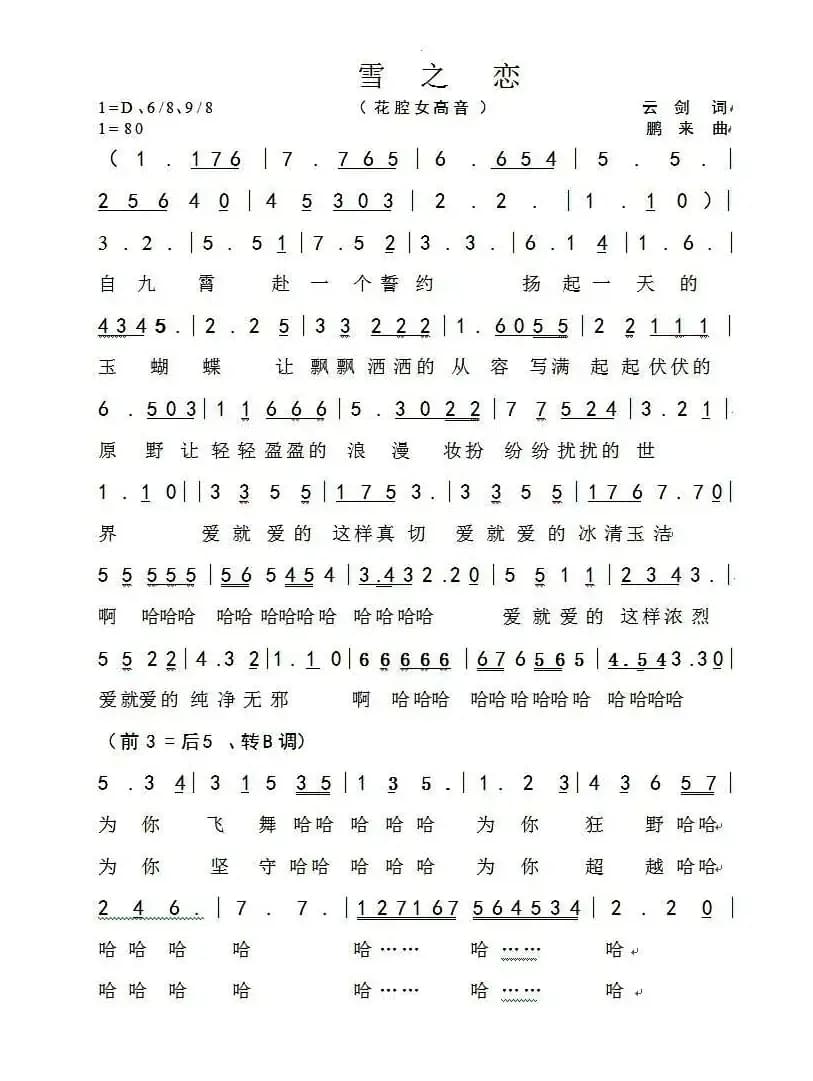 雪之恋
1=D、6/8、9/8 （花腔女高音） 云剑 词
1=80 鹏来 曲
（1 . 176 | 7 . 765 | 6 . 654 | 5 . 5 . |
256 4 0 | 4 5 303 | 2 . 2 . | 1 . 1 0 ）|
3 . 2 . | 5 . 5 1 | 7 . 5 2 | 3 . 3 . | 6 . 1 4 | 1 . 6 . |
自九霄 赴一个誓约 扬起一天的
4345. | 2 . 2 5 | 3 3 2 2 2 | 1 . 6055 | 2 2 1 1 1 |
玉蝴蝶 让飘飘洒洒的从容写满起起伏伏的
6 . 503 | 1 1 6 6 6 | 5 . 3022 | 7 7 524 | 3 . 2 1 |
原野让轻轻盈盈的浪漫妆扮纷纷扰扰的世
1 . 1 0 | | 3 3 5 5 | 1 7 5 3 . | 3 3 5 5 | 1 7 6 7 . 7 0 |
界 爱就爱的这样真切 爱就爱的冰清玉洁
5 5 5 5 5 | 56 545 4 | 3.432.20 | 5 5 1 1 | 2 3 4 3 . |
啊 哈哈哈 哈哈 哈哈哈哈 哈哈哈哈 爱就爱的这样浓烈
5 5 2 2 | 4 . 3 2 | 1 . 1 0 | 6 6 6 6 6 | 676 565 | 4.543.30 |
爱就爱的纯净无邪 啊 哈哈哈 哈哈哈哈哈哈 哈哈哈哈
（前3＝后5 、转B调）
5 . 3 4 | 3 1 5 3 5 | 1 3 5 . | 1 . 2 3 | 4 3 6 5 7 |
为你 飞舞哈哈 哈哈哈 为你 狂野哈哈
为你 坚守哈哈 哈哈哈 为你 超越哈哈
2 4 6 . | 7 . 7 . | 127167 564534 | 2 . 2 0 |
哈哈哈 哈 哈…… 哈…… 哈
哈哈哈 哈 哈…… 哈…… 哈